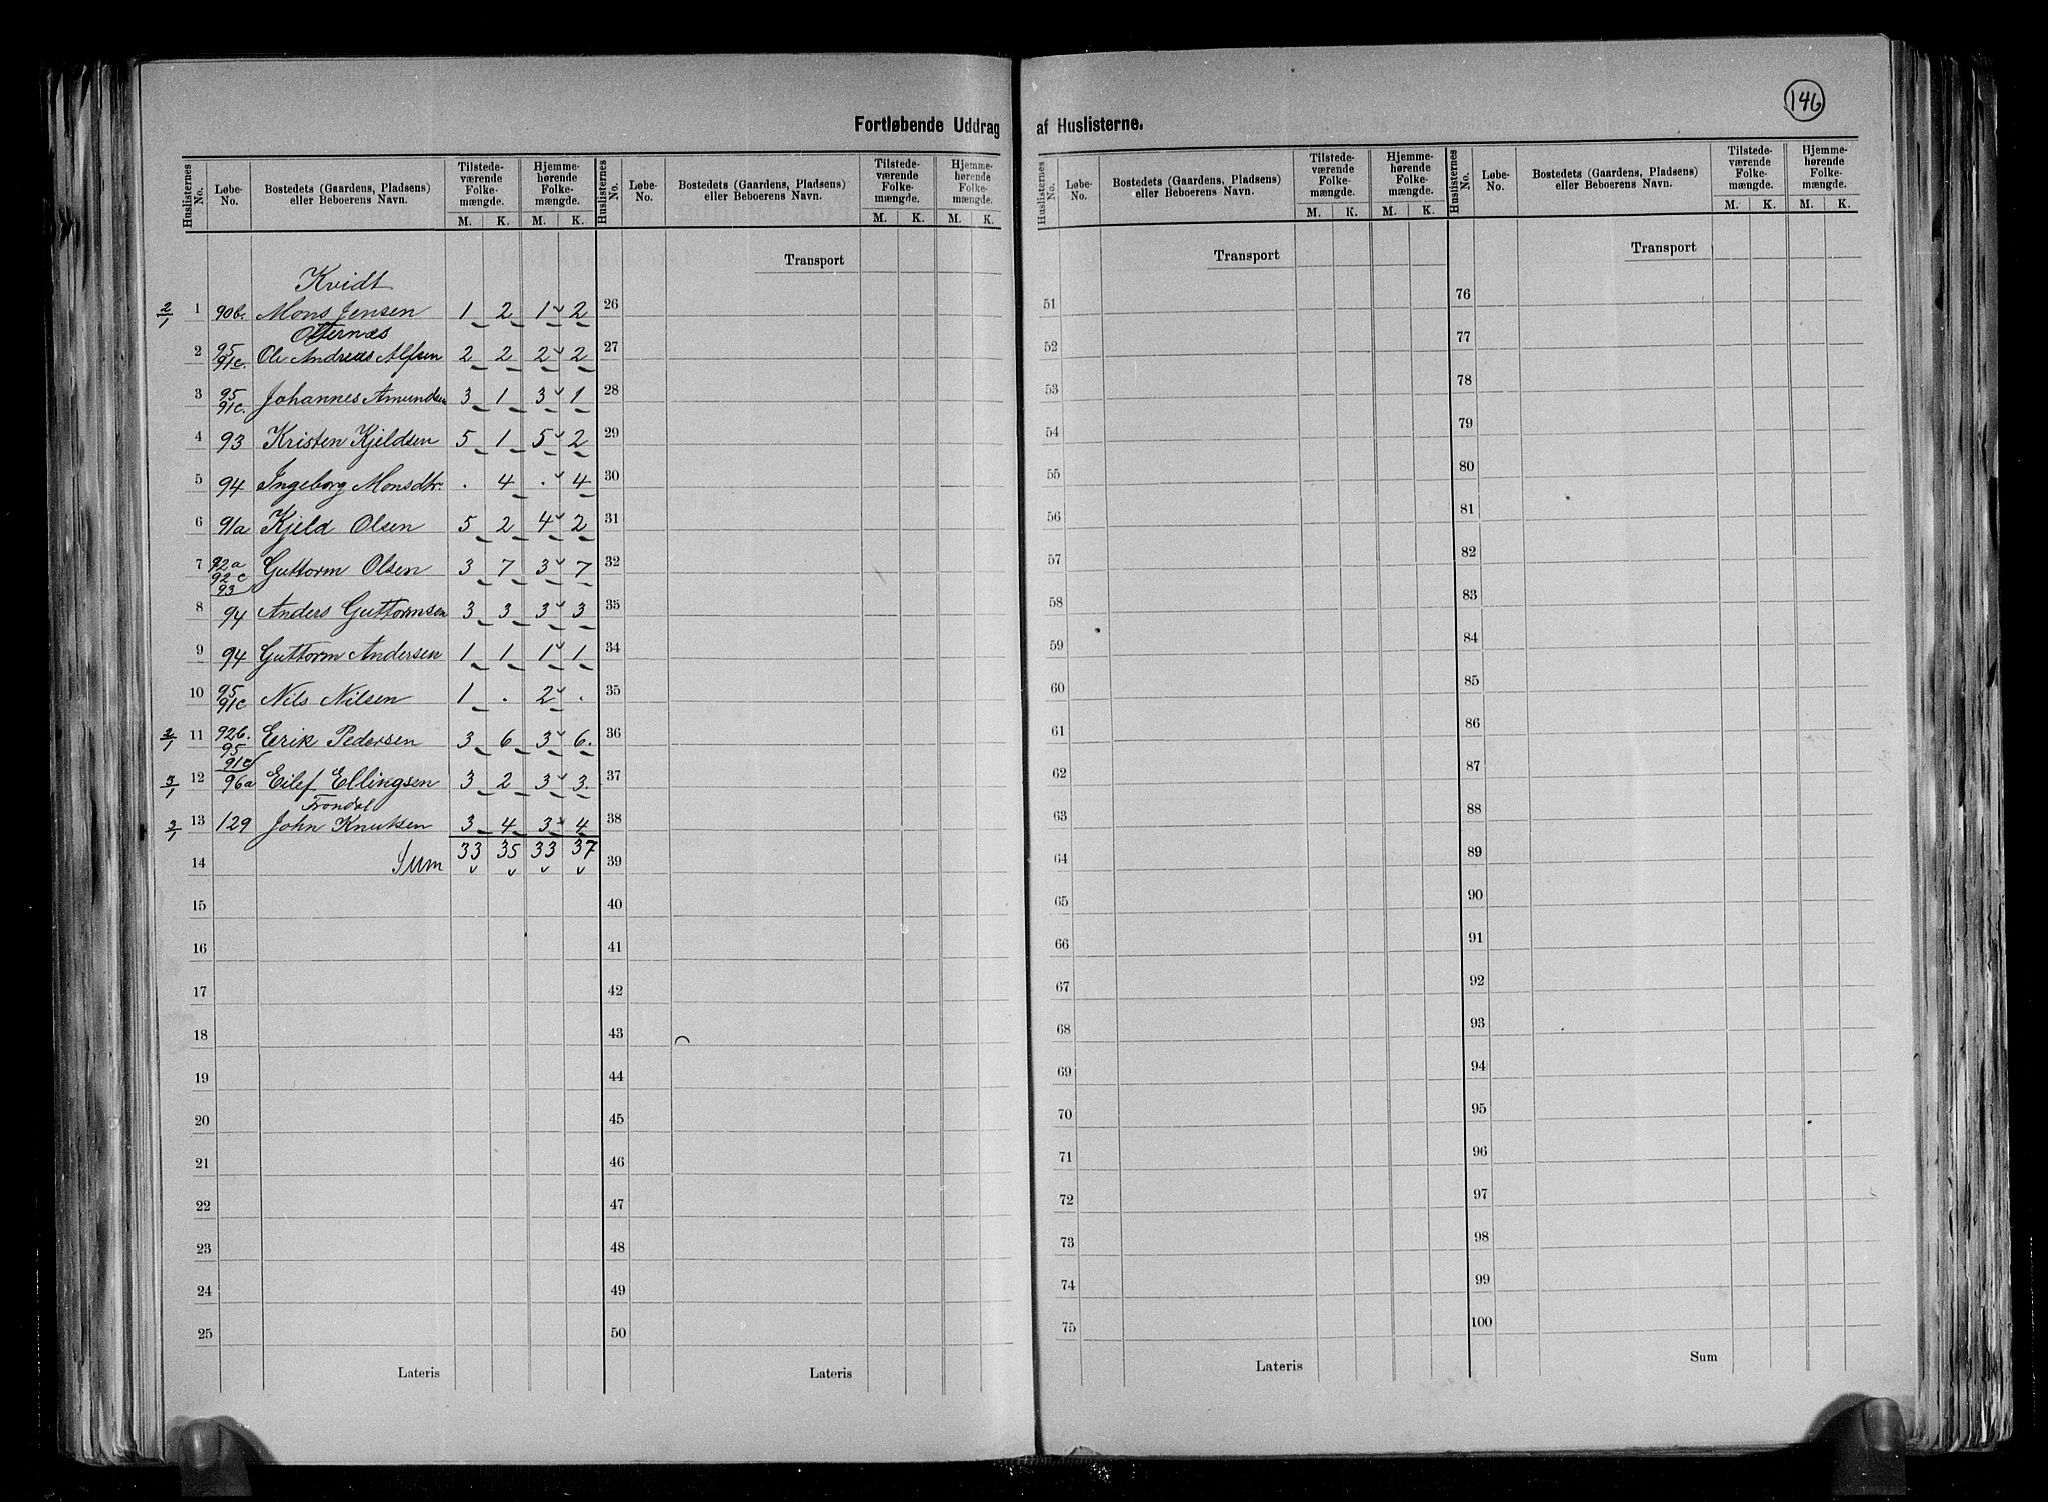 146
Fortløbende Uddrag af Huslisterne.
Huslisternes No. Løbe-No. Bostedets (Gaardens, Pladsens) eller Beboerens Navn. Tilstedeværende Folkemængde. M. K. Hjemmehørende Folkemængde. M. K.
Huslisternes No. Løbe-No. Bostedets (Gaardens, Pladsens) eller Beboerens Navn. Tilstedeværende Folkemængde. M. K. Hjemmehørende Folkemængde. M. K.
Huslisternes No. Løbe-No. Bostedets (Gaardens, Pladsens) eller Beboerens Navn. Tilstedeværende Folkemængde. M. K. Hjemmehørende Folkemængde. M. K.
Huslisternes No. Løbe-No. Bostedets (Gaardens, Pladsens) eller Beboerens Navn. Tilstedeværende Folkemængde. M. K. Hjemmehørende Folkemængde. M. K.
Kvidt
2/1 1 90b. Mons Jensen 1 2 1 2
Otternæs
2 95 91c. Ole Andreas Alfsen 2 2 2 2
3 95 91c. Johannes Amundsen 3 1 3 1
4 93 Kristen Kjeldsen 5 1 5 2
5 94 Ingeborg Monsdtr. . 4 . 4
6 91a Kjeld Olsen 5 2 4 2
7 92a 92c 93 Guttorm Olsen 3 7 3 7
8 94 Anders Guttormsen 3 3 3 3
9 94 Guttorm Andersen 1 1 1 1
10 95 91c Nils Nilsen 1 . 2 .
2/1 11 92b. 95 91c Eerik Pedersen 3 6 3 6.
3/1 12 96a Eilef Ellingsen 3 2 3 3.
Frondal
3/1 13 129 John Knutsen 3 4 3 4
14 Sum 33 35 33 37
15
16
17
18
19
20
21
22
23
24
25
Lateris
Transport
26
27
28
29
30
31
32
35
34
35
36
37
38
39
40
41
42
43
44
45
46
47
48
49
50
Lateris
Transport
51
52
53
54
55
56
57
58
59
60
61
62
63
64
65
66
67
68
69
70
71
72
73
74
75
Lateris
Transport
76
77
78
79
80
81
82
83
84
85
86
87
88
89
90
91
92
93
94
95
96
97
98
99
100
Sum